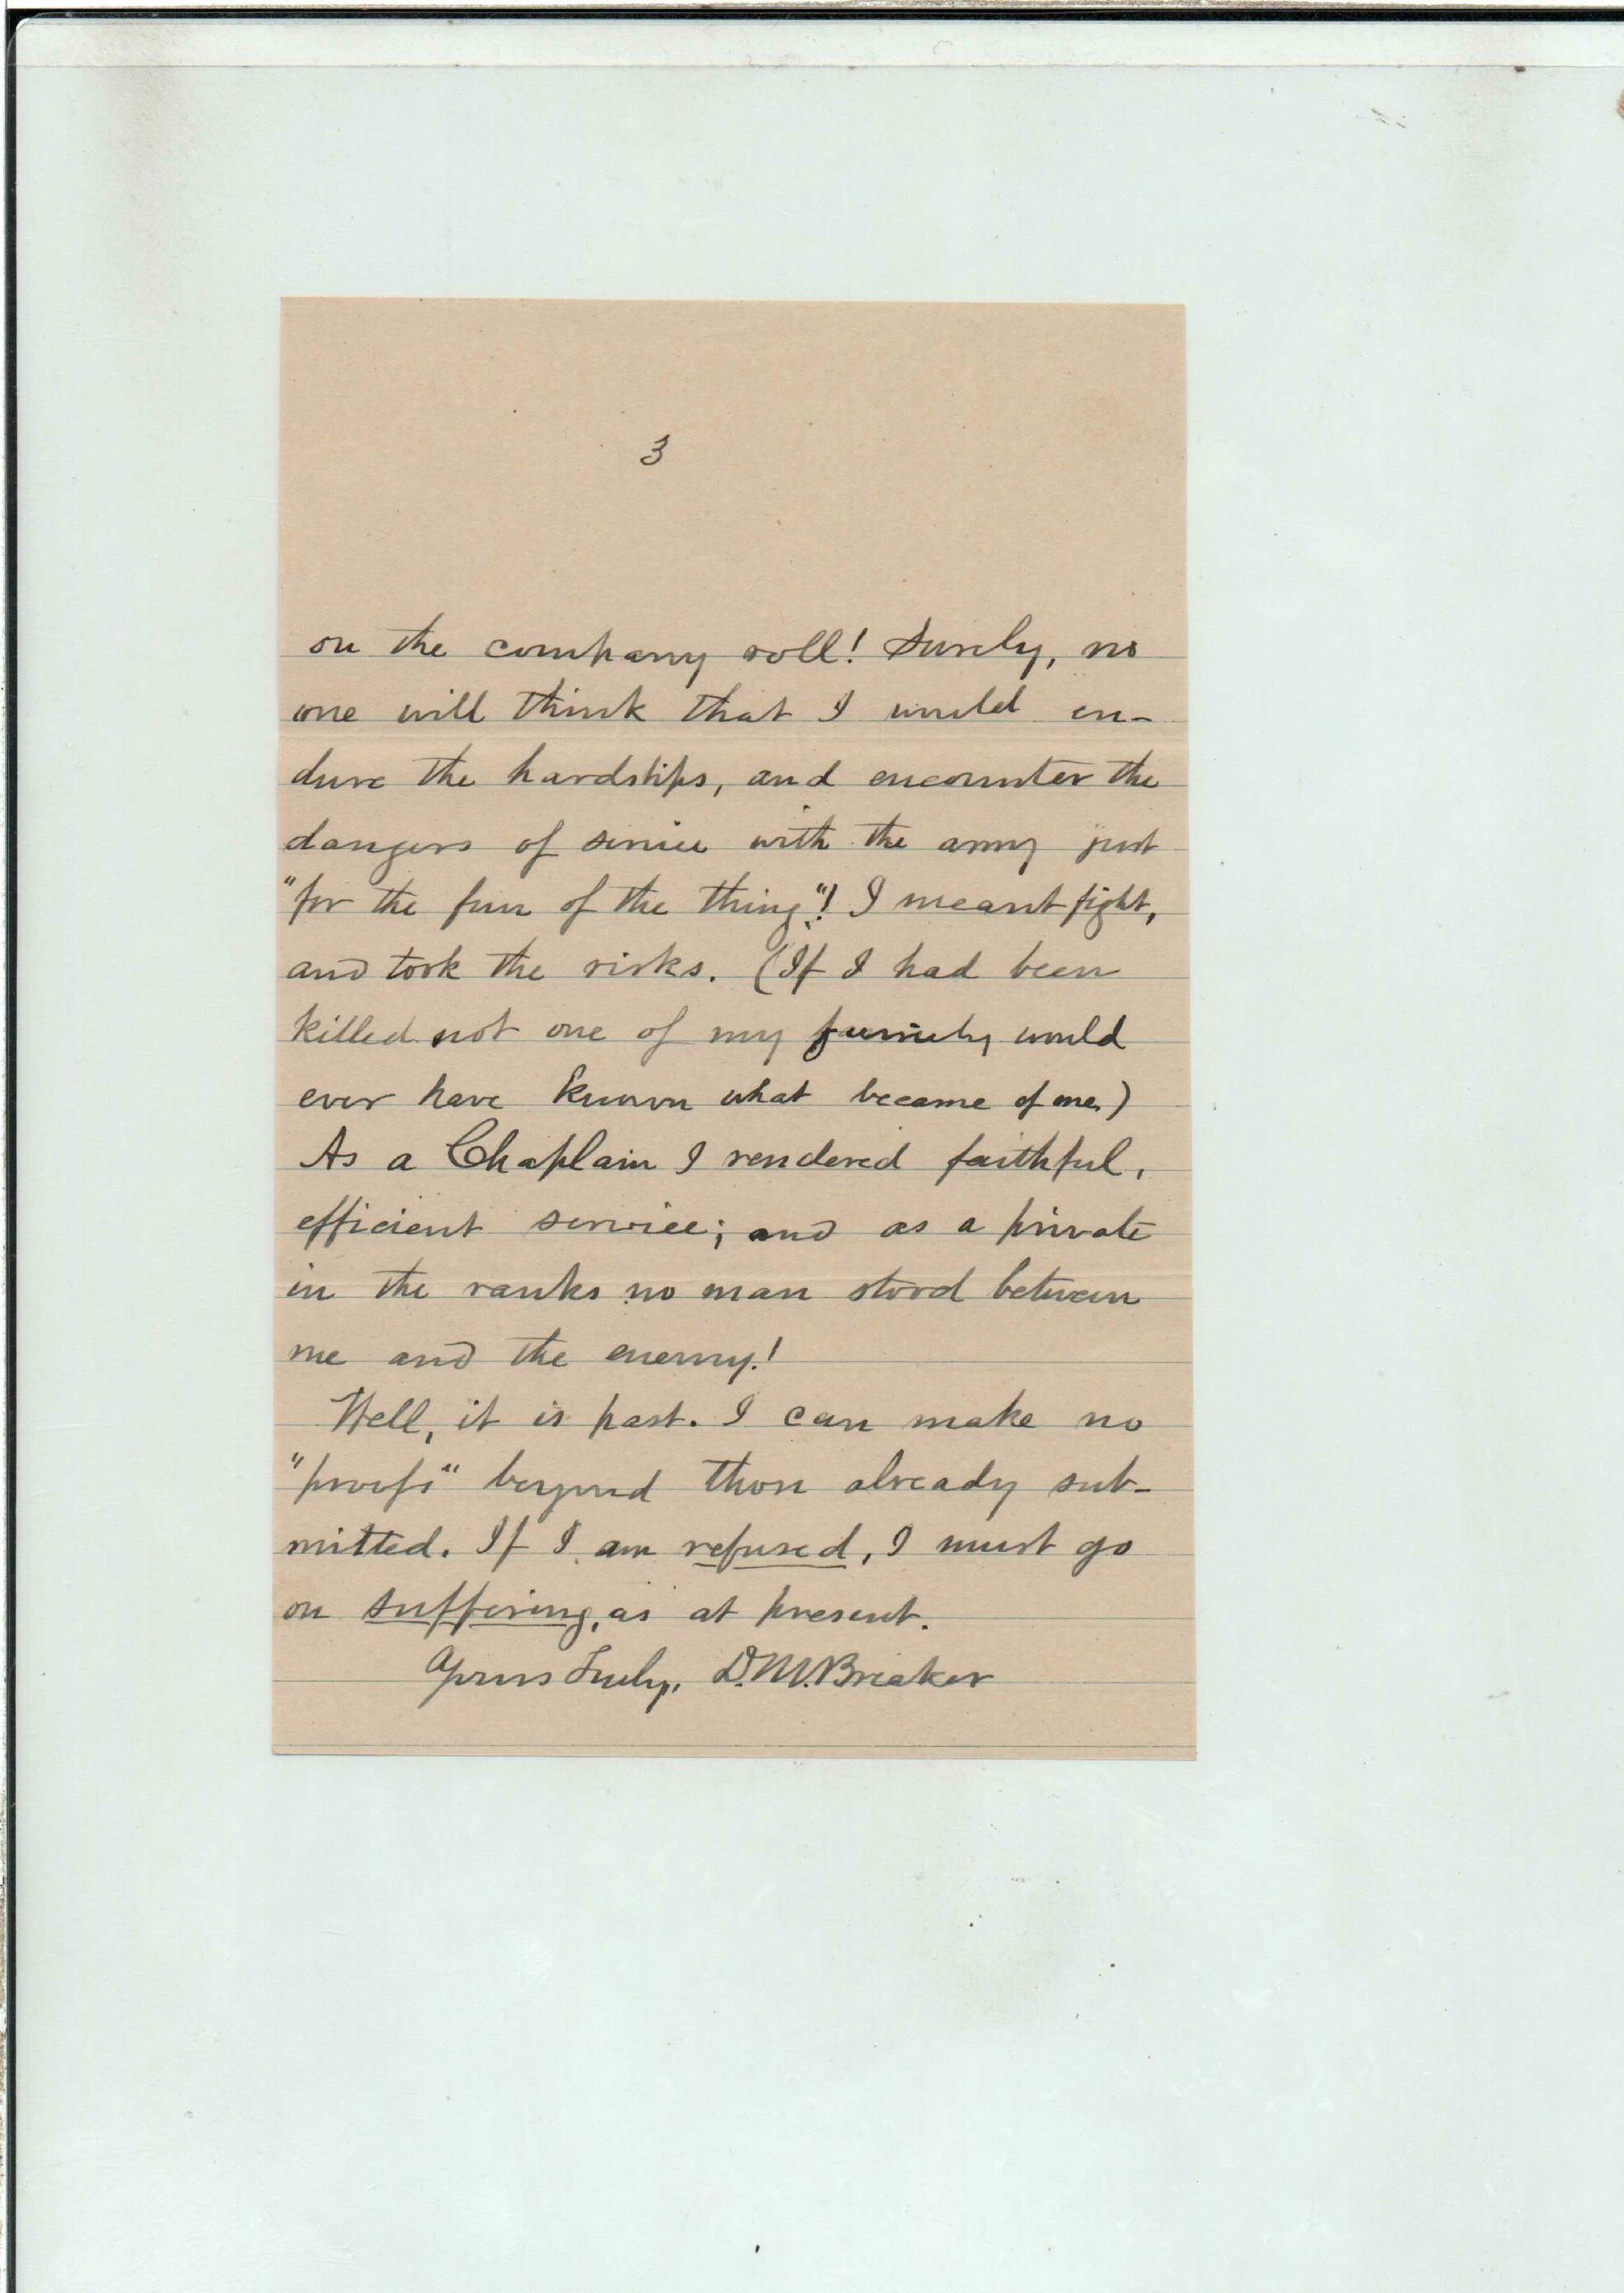 3
on the company roll! Surely, no
one will think that I would en-
dure the hardships, and encounter the
dangers of service with the army just
"for the fun of the thing"! I meant fight,
and took the risks. (If I had been
killed not one of my family would
ever have known what became of me.)
As a Chaplain I rendered faithful,
efficient service; and as a private
in the ranks no man stood between
me and the enemy!
Well, it is past. I can make no
"proofs" beyond those already sub-
mitted. If I am refused, I must go
on suffering, as at present.
Yours Truly, D.M. Breaker